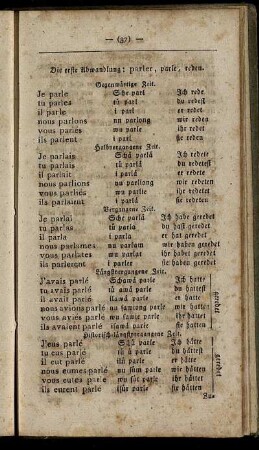 — (32) —
Die erste Abwandlung: parler, parle, reden.
Gegenwärtige Zeit.
Je parle Schr parl Ich rede
tu parles tü parl du redest
il parle i parl er redet
nous parlons nu parlong wir reden
vous parlés wu parle ihr redet
ils parlent i parl sie reden
Halbvergangene Zeit.
Je parlais Schö parlä Ich redete
tu parlais tü parlä du redetest
il parlait i parlä er redete
nous parlions nu parliong wir redeten
vous parliés wu parlie ihr redetet
ils parloient i parlä sie redeten
Vergangene Zeit.
Je parlai Schö parlä Ich habe geredet
tu parlas tü parla du hast geredet
il parla i parla er hat geredet
nous parlames nu parlam wir haben geredet
vous parlates wu parlat ihr habet geredet
ils parlerent i parlär sie haben geredet
Längstvergangene Zeit.
J'avais parlé Schawä parle Ich hatte
tu avais parlé tü awä parle du hattest
il avait parlé ilawä parle er hatte
nous avions parlé nu sawiong parle wir hatten
vous aviés parlé wu sawie parle ihr hattet
ils avaient parlé ilsawä parle sie hatten
geredet
Historisch-längstvergangene Zeit.
J'eus parlé Schü parle Ich hätte
tu eus parlé tü ü parle du hättest
il eut parlé il ü parle er hätte
nous eumes parlé nu süm parle wir hätten
vous eutes parlé wu süt parle ihr hättet
ils eurent parlé ilsür parle sie hätten
geredet